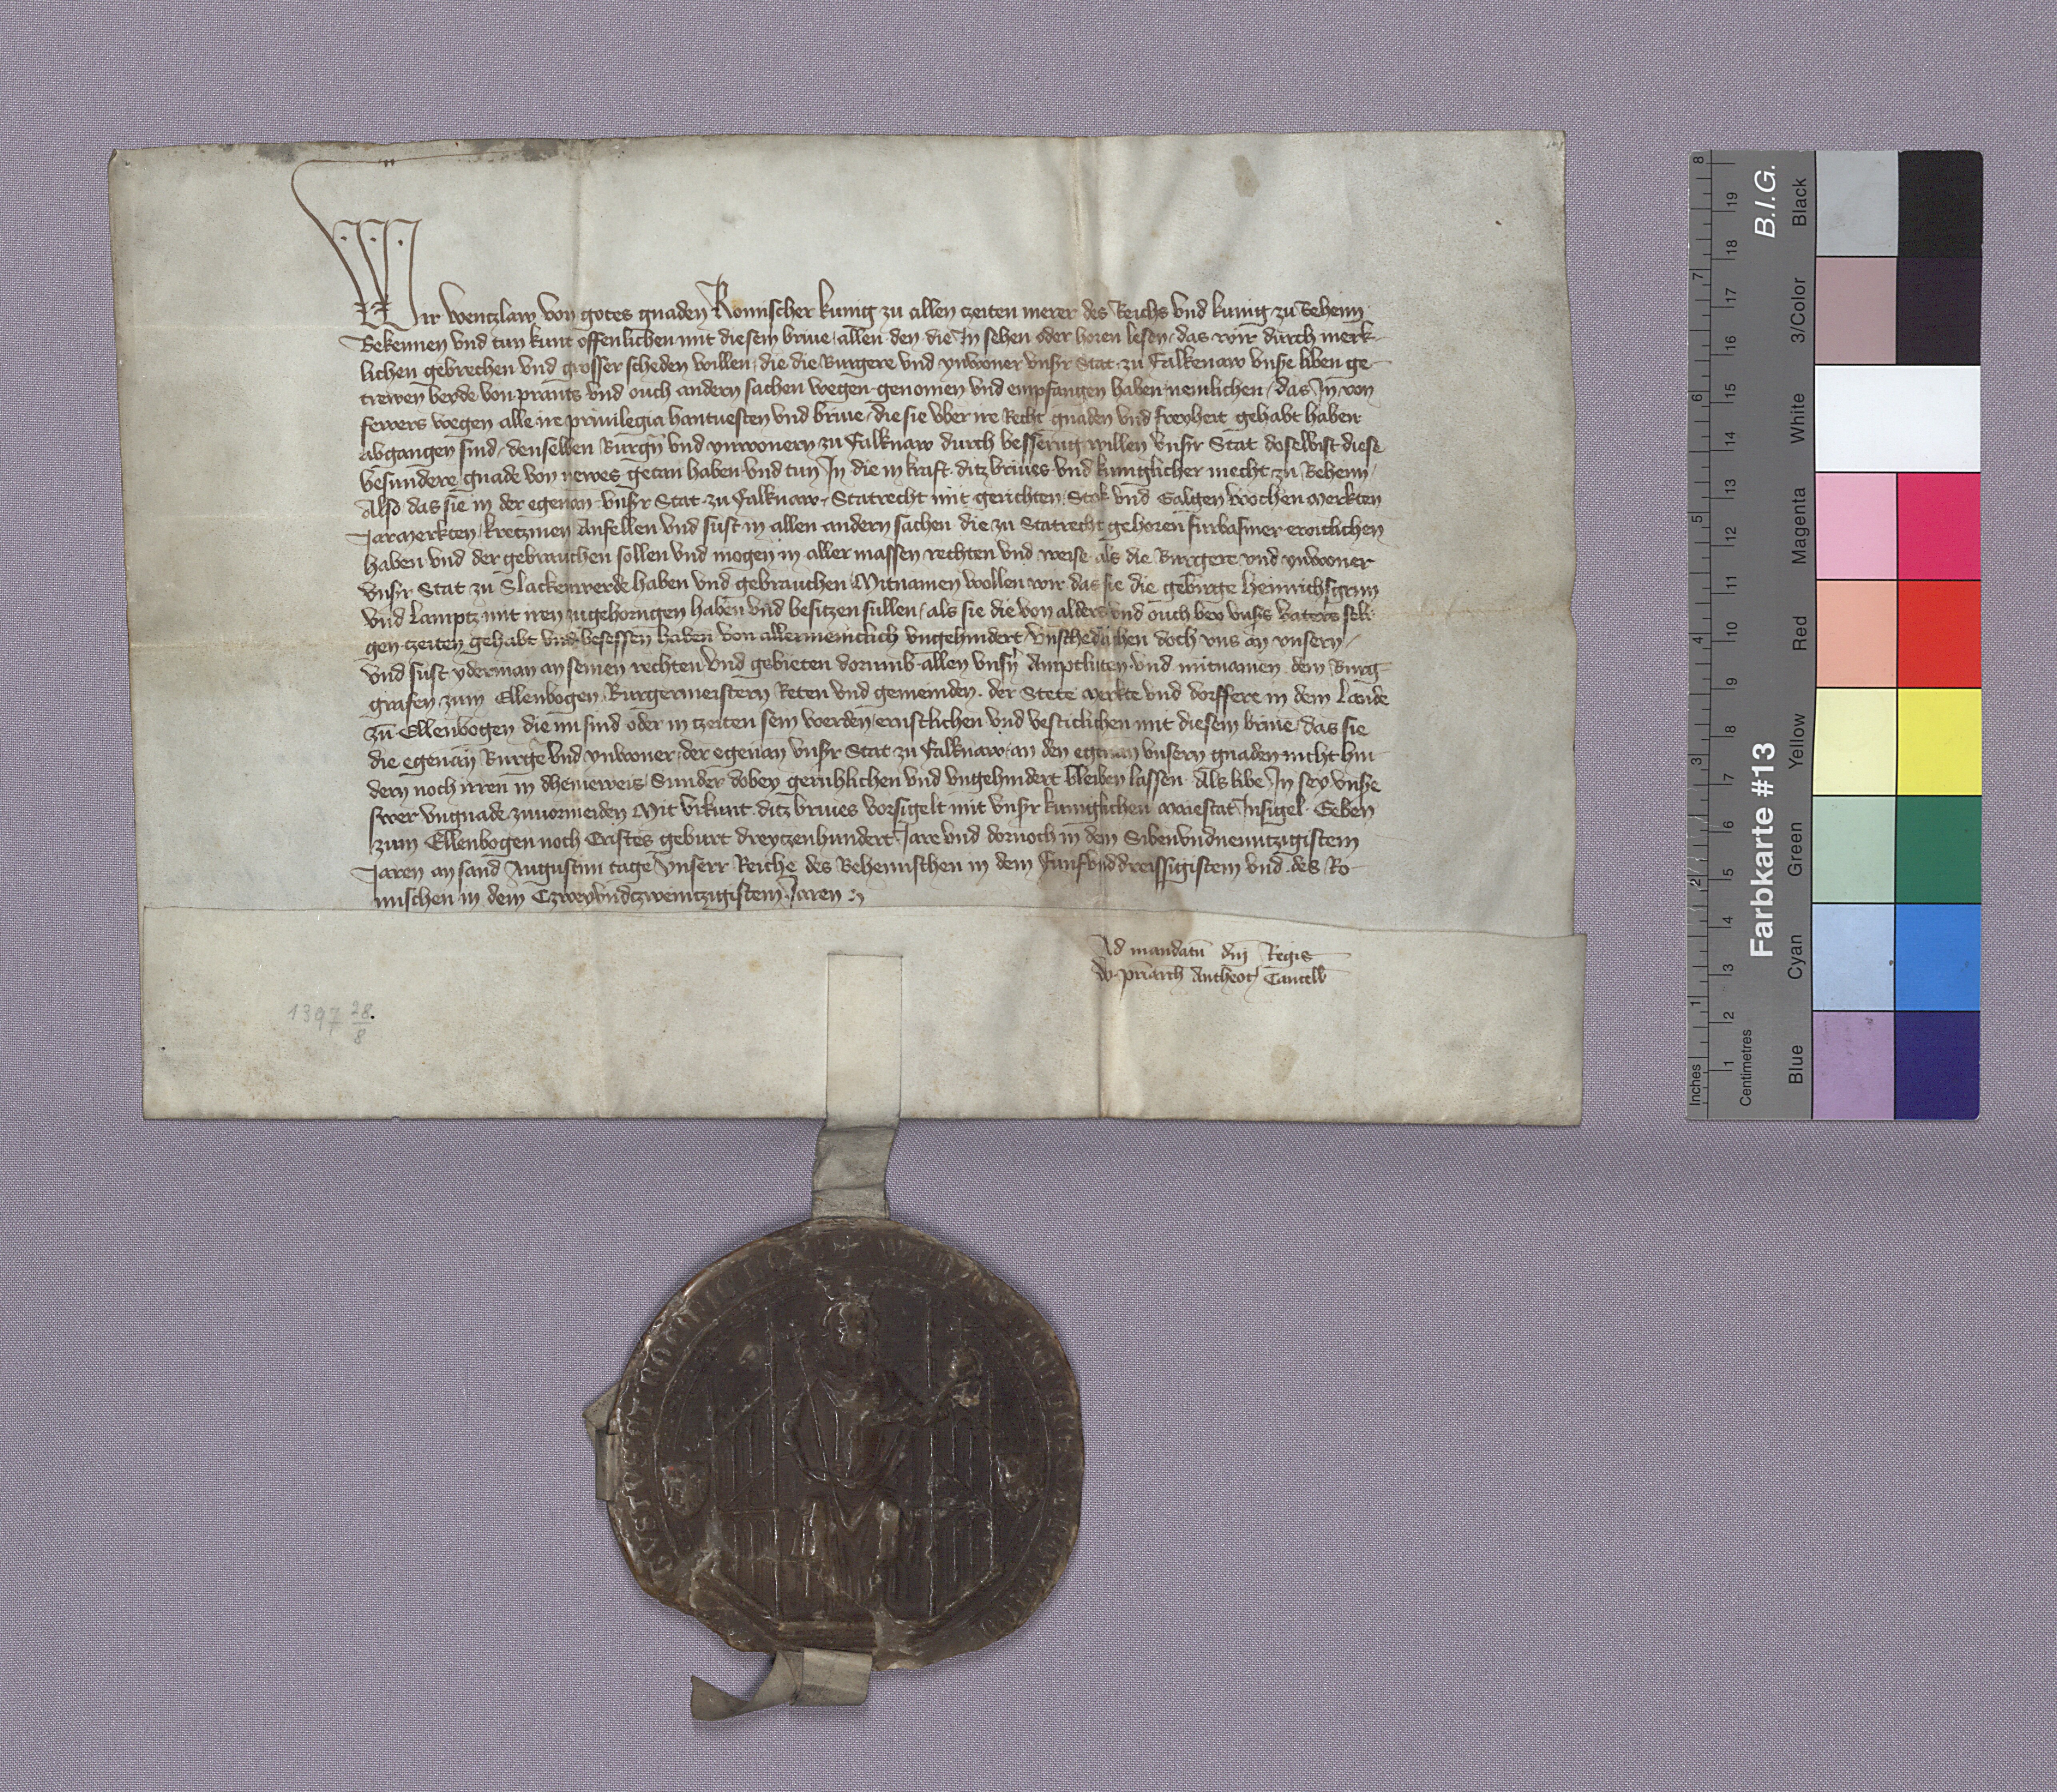 Wir Wenczlaw von gotes gnaden Romischer kunig zu allen czeiten merer des Reichs vnd kunig zu Behem
Bekennen vnd tun kunt offenlichen mit diesem briue allen den die In sehen oder horen lesen, das wir durch merk-
lichen gebrechen vnd grosser scheden willen, die die Burgere vnd ynwoner vnsr Stat zu Falkenaw vnse liben ge-
trewen beyde von prants vnd ouch andern sachen wegen genomen vnd empfangen haben nemlichen, das In von
fewers wegen alle ire priuilegia hantuesten vnd briue, die sie vber ire Recht gnaden vnd freyheit gehabt haben
abgangen sind, denselben Burgn vnd ynwonern zu Falknaw durch besserung willen vnsr Stat doselbist diese
besundere gnade von newes getan haben vnd tun In die in kraft ditz briues vnd kuniglicher mecht zu Behem,
Also das sie in der egenan vnsr Stat zu Falknaw, Statrecht mit gerichten, Stok vnd Galgen Wochen merkten
Jarmerkten, kretzmen Anfellen vnd sust in allen andern sachen die zu Statrecht gehoren furbasmer ewiclichen
haben vnd der gebrauchen sollen vnd mogen in aller massen rechten vnd weise als die Burgere vnd ynwoner
vnsr Stat zu Slackenwerde haben vnd gebrauchen Mitnamen wollen wir das sie die gebirge Heinrichsgrun
vnd Lamptz mit iren zugehorungen haben vnd besitzen sullen, als sie die von alders vnd ouch bey vnsrs vaters seli-
gen czeiten gehabt vnd besessen haben von allermeniclich vngehindert vnschedlichen doch vns an vnsern,
vnd sust yderman an seinen rechten vnd gebieten dorumb allen vnsn Amptluten vnd mitnamen dem Burg-
grafen zum Ellenbogen Burgermeistern Reten vnd gemeinden der Stete merkte vnd dorffere in dem Lande
zu Ellenbogen die nu sind oder in czeiten sein werden ernstlichen vnd vesticlichen mit diesem briue, das sie
die egenan Burge vnd ynwoner, der egenan vnsr Stat zu Falknaw, an den egenan vnsern gnaden nicht hin-
dern noch irren in dheineweis, Sunder dobey geruhlichen vnd vngehindert bleiben lassen Als libe In sey vnse
swer vngnade zuuormeiden Mit vrkunt ditz briues vorsigelt mit vnsr kuniglichen Maiestat Insigel Geben
zum Ellenbogen noch Cristes geburt dreyczenhundert Jare vnd dornoch in dem Sibenvndnewntzigistem
Jaren an sand Augustini tage vnserr Reiche des Behemischen in dem Funfvnddreissigistem vnd des Ro-
mischen in dem Czweyvndczweintzigistem Jaren
Ad mandatu dnj Regis
W. priarch Antheoc Cancell
1397 28/8
Inches
Centimetres
Farbkarte #13
B.I.G.
Blue
Cyan
Green
Yellow
Red
Magenta
White
3/Color
Black
1 2 3 4 5 6 7 8
1 2 3 4 5 6 7 8 9 10 11 12 13 14 15 16 17 18 19